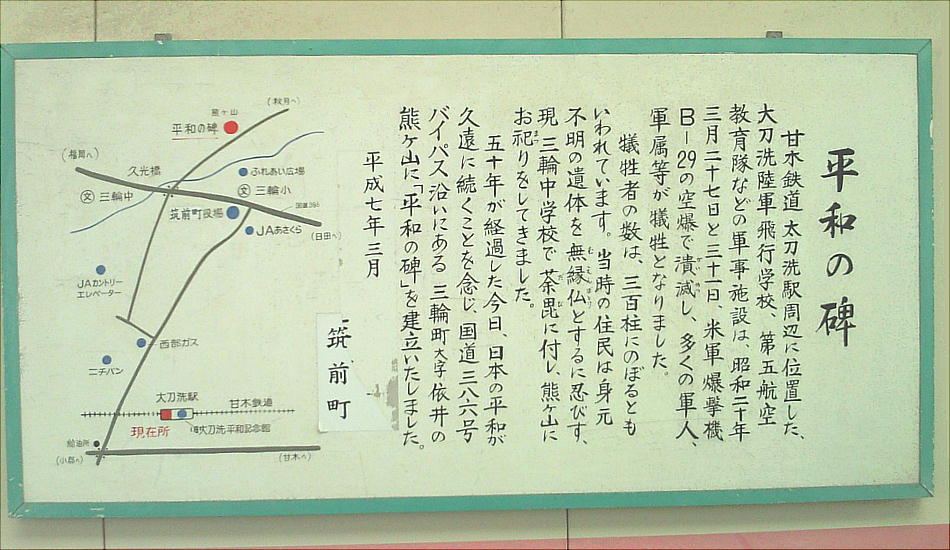 平和の碑
甘木鉄道 太刀洗駅周辺に位置した、
大刀洗陸軍飛行学校、第五航空
教育隊などの軍事施設は、昭和二十年
三月二十七日と三十一日、米軍爆撃機
B-29の空爆で潰滅し、多くの軍人、
軍属等が犠牲となりました。
犠牲者の数は、三百柱にのぼるとも
いわれています。当時の住民は身元
不明の遺体を無縁仏とするに忍びず、
現 三輪中学校で荼毘に付し、熊ヶ山に
お祀りをしてきました。
五十年が経過した今日、日本の平和が
久遠に続くことを念じ、国道三八六号
バイパス沿いにある 三輪町大字依井の
熊ヶ山に「平和の碑」を建立いたしました。
平成七年三月
筑前町
(秋月へ)
熊ヶ山
平和の碑
(福岡へ)
久光橋
ふれあい広場
文 三輪中
文 三輪小
国道386
筑前町役場
JAあさくら
(日田へ)
JAカントリー
エレベーター
西部ガス
ニチバン
大刀洗駅
甘木鉄道
現在所
大刀洗平和記念館
給油所
(小郡へ)
(甘木へ)